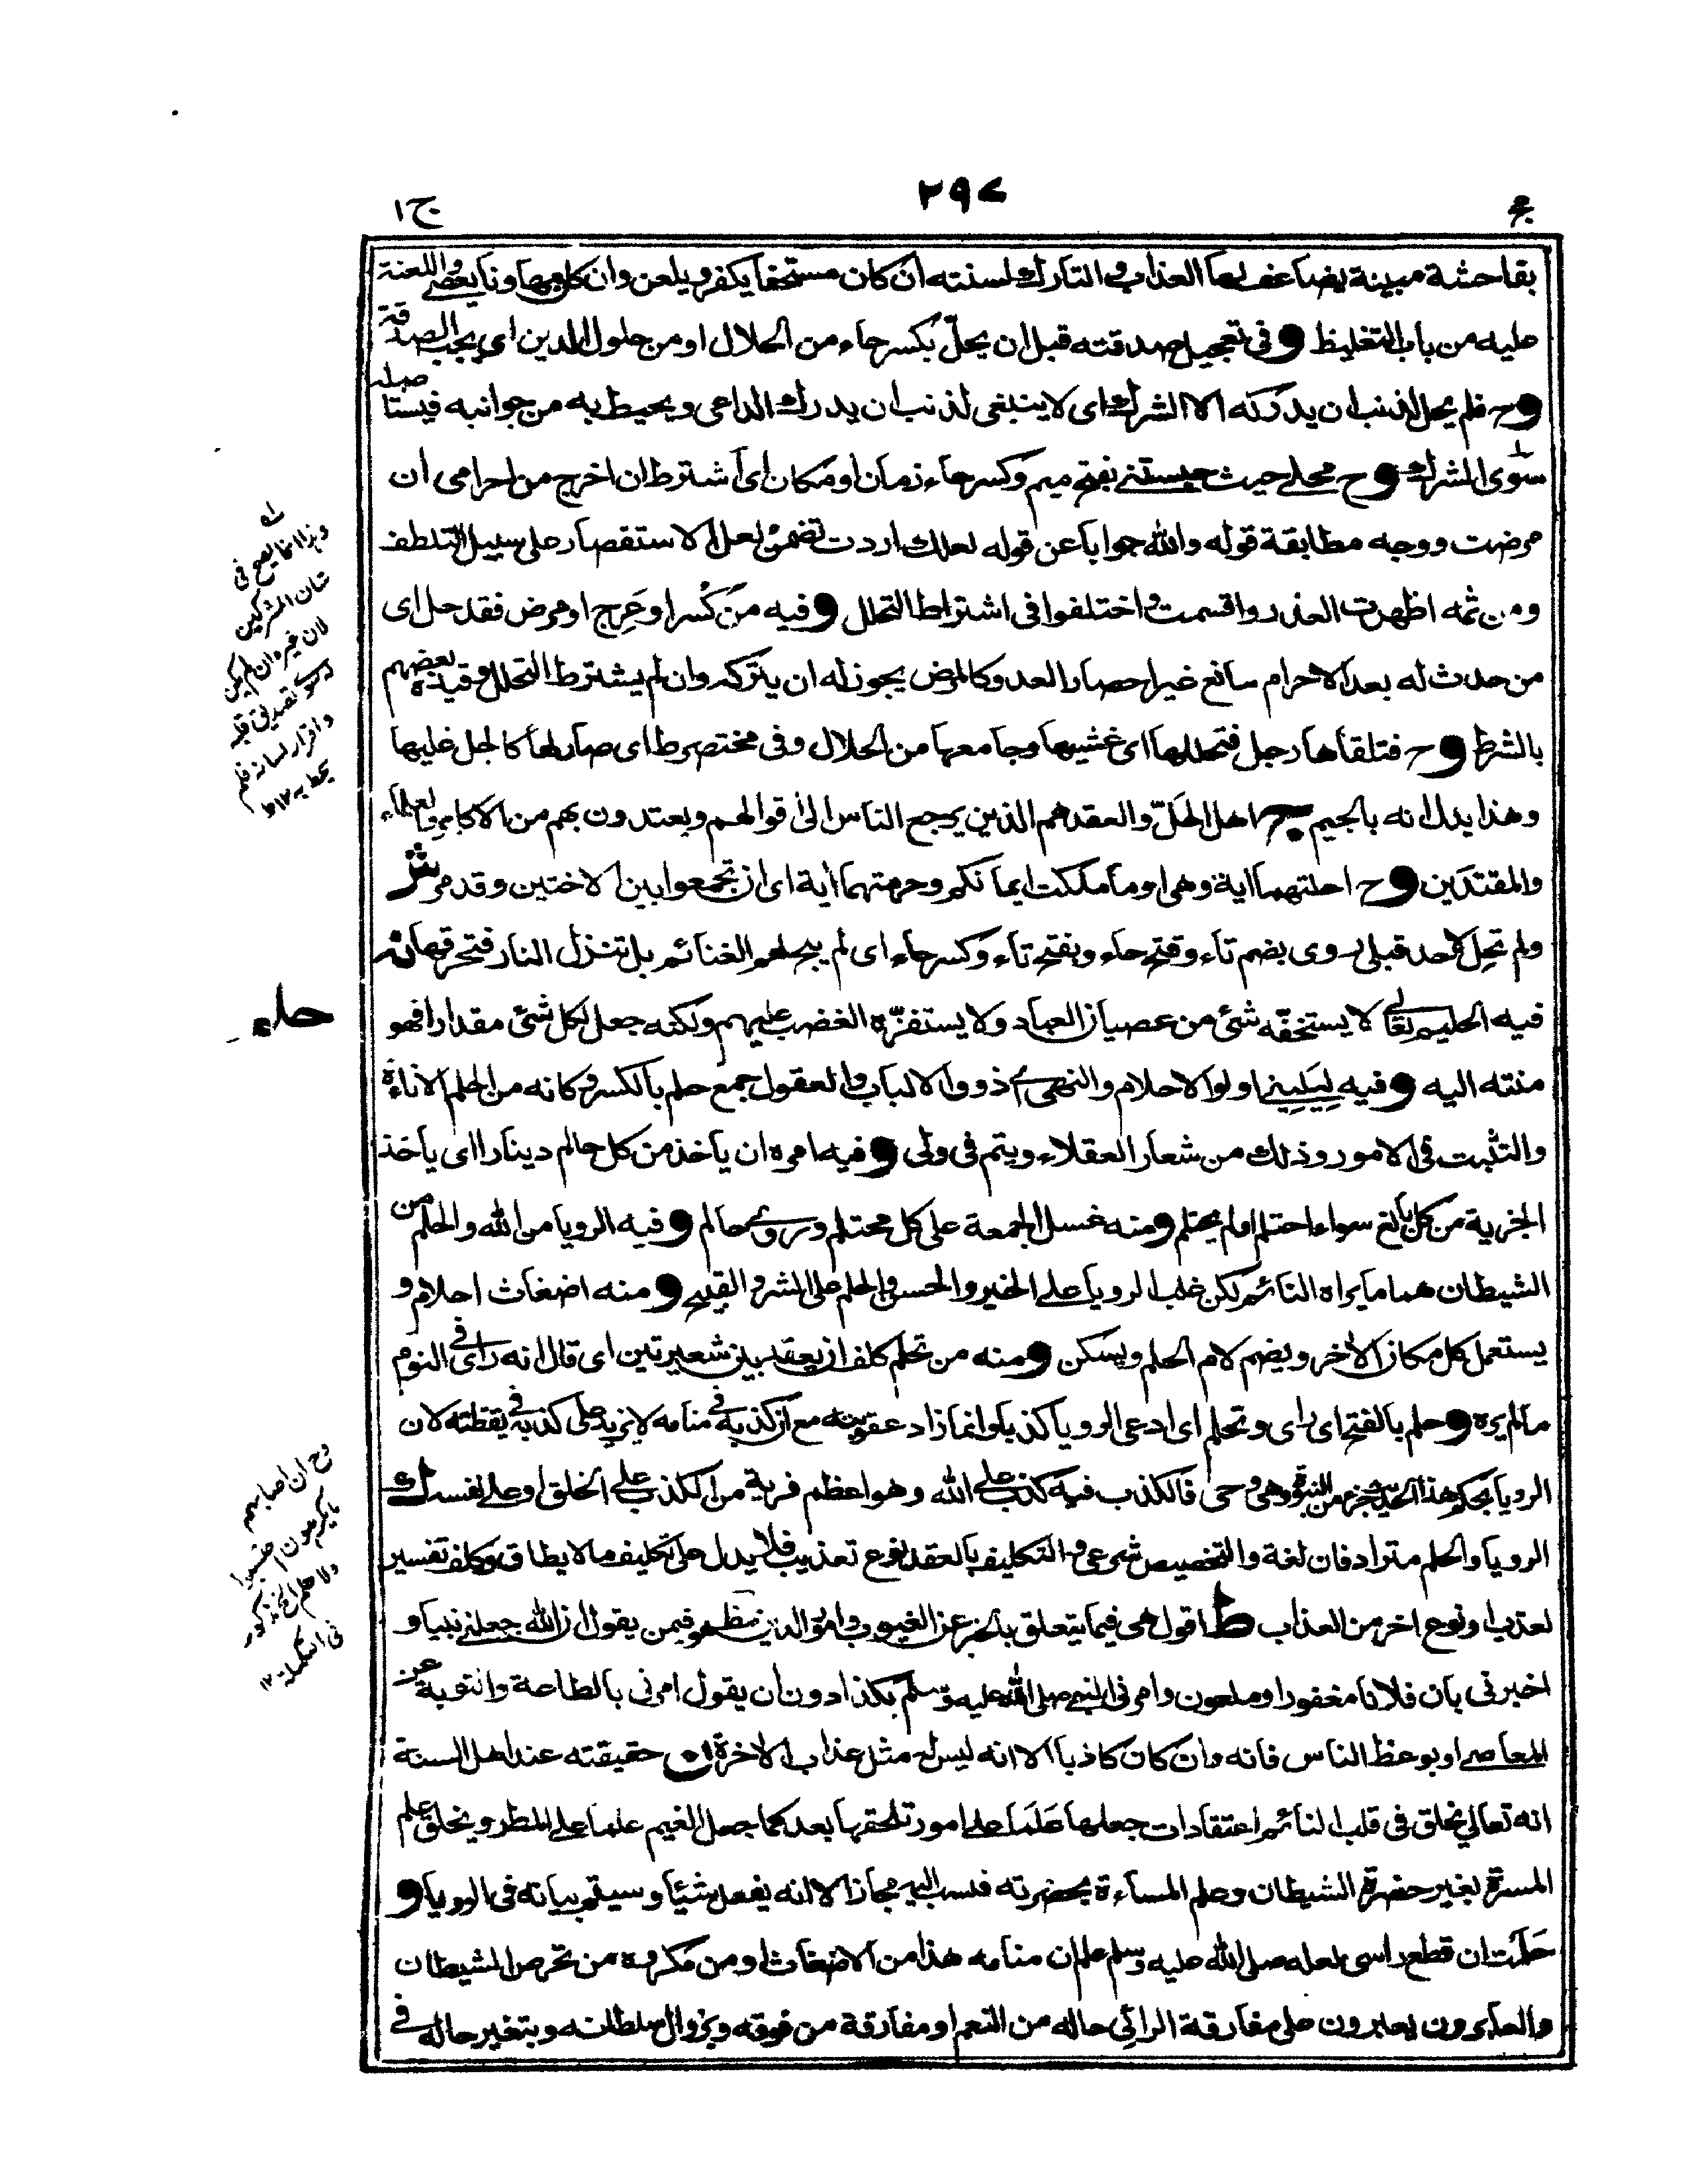 مج
٢٩٧
ج١
بفاحشة مبينة يضاعف لها العذاب والتارك لسنته ان كان مستخفا يكفر ويلعن وان كان تهاونا يعصى واللعنة
عليه من باب التغليظ و فى تعجيل صدقته قبل ان يحلّ بكسر حاء من الحلال او من حلول الدين اى يجب الصدقة
و ح فلم يحل لذنب ان يدركه الا الشرك اى لا ينبغى لذنب ان يدرك الداعى ويحيط به من جوانبه فيستاصله
سوى الشرك و ح محلى حيث حبستنى بفتح ميم وكسر حاء زمان او مكان اى اشترط ان اخرج من احرامى ان
مرضت ووجه مطابقة قوله والله جوابا عن قوله لعلك اردت تضمن لعل الاستقصار على سبيل التلطف
ومن ثمه اظهرت العذر واقسمت واختلفوا فى اشتراط التحلل و فيه من كُسر او عَرِج او مرض فقد حل اى
من حدث له بعد الاحرام مانع غير احصار العدو كالمرض يجوز له ان يتركه وان لم يشترط التحلل وقيده بعضهم
بالشرط و ح فتلقاها رجل فتحللها اى غشيها وجامعها من الحلال وفى مختصر ط اى صار لها كالجل عليها
وهذا يدل انه بالجيم ج اهل الحَلّ والعقد هم الذين يرجع الناس الى اقوالهم ويعتدون بهم من الاكابر والعلماء
والمقتدَين و ح احلتهما اية وهى او ما ملكت ايمانكم وحرمتهما اية اى ان تجمعوا بين الاختين وقد مر ش
ولم تحِل لاحد قبلى روى بضم تاء وفتح حاء وبفتح تاء وكسر حاء اى لم يبح لهم الغنائم بل تنزل النار فتحرقها نه
حلم
فيه الحليم تعالى لا يستخفه شئ من عصيان العباد ولا يستفزّه الغضب عليهم ولكنه جعل لكل شئ مقدارا فهو
منته اليه و فيه ليلينى اولوا الاحلام والنهى اى ذووا الالباب والعقول جمع حلم بالكسر وكانه من الحلم الاناءة
والتثبت فى الامور وذلك من شعار العقلاء ويتم فى ولى و فيه امره ان ياخذ من كل حالم دينارا اى ياخذ
الجزية من كل بالغ سواء احتلم او لم يحتلم ومنه غسل الجمعة على كل محتلم وروى حالم و فيه الرويا من الله والحلم من
الشيطان هما ما يراه النائم لكن غلب الرويا على الخير والحسن والحلم على الشر والقبيح و منه اضغاث احلام و
يستعمل كل مكان الاخر ويضم لام الحلم ويسكن و منه من تحلم كلف ان يعقد بين شعيرتين اى قال انه راى فى النوم
ما لم يره و حلم بالفتح اى راى وتحلم اى ادعى الرويا كذبا وانما زاد عقوبته مع ان كذبه فى منامه لا يزيد على كذبه فى يقظته لان
الرويا بحكم هذا الحديث جزء من النبوة وهى وحى فالكذب فيه كذب على الله وهو اعظم فرية من الكذب على الخلق او على نفسه ك
الرويا والحلم مترادفان لغة والتخصيص شرعى و التكليف بالعقد نوع تعذيب فلا يدل على تكليف ما لا يطاق وكلف تفسير
لعذب او نوع اخر من العذاب ط اقول هى فيما يتعلق بالخبر عن الغيوب وامور الدين مظهر فيمن يقول ان الله جعلنى نبيا و
اخبرنى بان فلانا مغفور او ملعون وامرنى النبى صلى الله عليه وسلم بكذا دون ان يقول امرنى بالطاعة والتوبة عن
المعاصى او بوعظ الناس فانه وان كان كاذبا الا انه ليس له مثل عذاب الاخرة ن حقيقته عند اهل السنة
انه تعالى يخلق فى قلب النائم اعتقادات جعلها عَلَما على امور تلحقها بعد كما جعل الغيم علما على المطر ويخلق علم
المسرة بغير حضرة الشيطان وعلم المساءة بحضرته فنسب اليه مجازا لا انه يفعل شيئا وسيتم بيانه فى الرويا و
حَلَمت ان قطع راسى لعله صلى الله عليه وسلم علم ان منامه هذا من الاضغاث او من مكروه من تحرص الشيطان
والعابرون يعبرون على مفارقة الرائى حاله من النعم او مفارقة من فوقه ويزوال سلطانه وبتغير حاله فى
له
وہذا انما يصح فى
شان المشركين
لان غيره وان لم يكن
تصديق قلبه
واقرار لسانه فلم
يحط به ١٢ ط
و ح ان اصابهم
ما يكرهون
فى التكملة ١٢